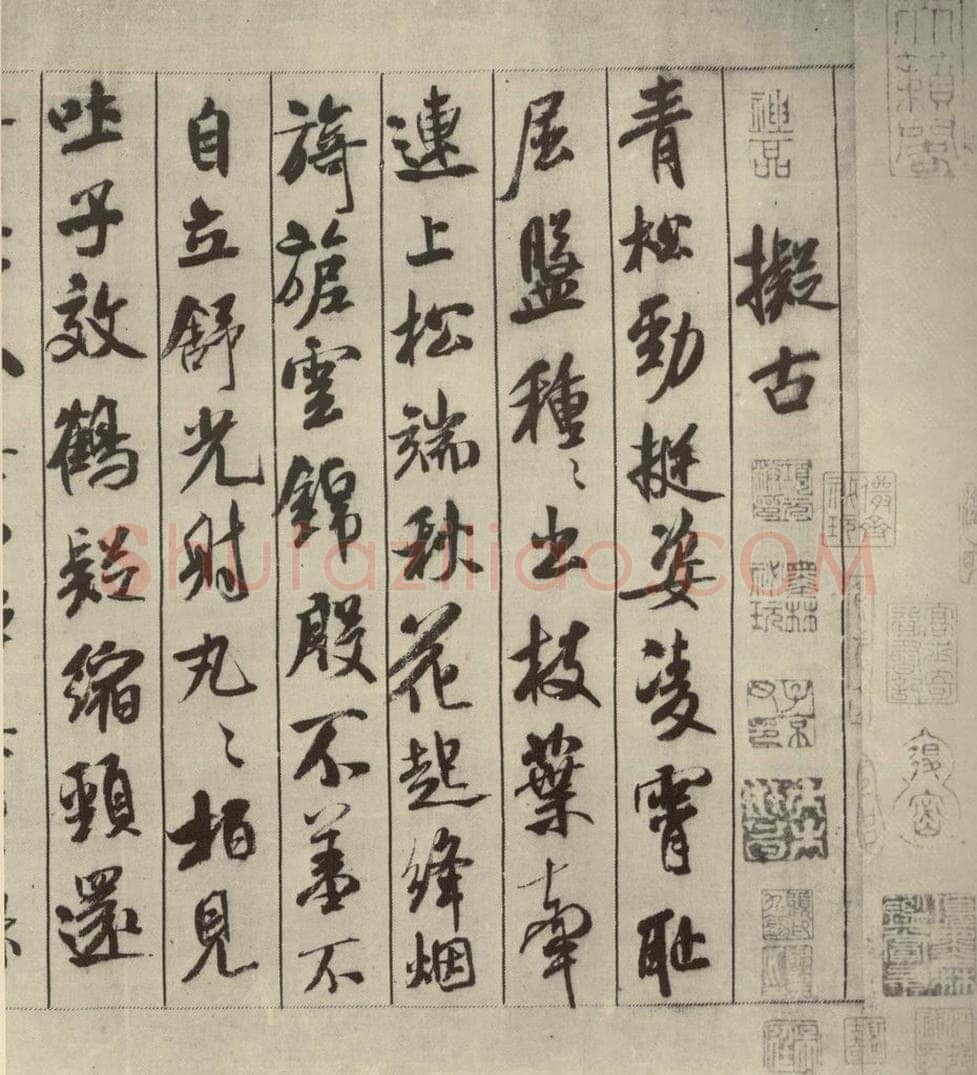 神品
擬古
青松勁挺姿凌霄耻
屈盤種〻出枝葉牽
連上松端秋花起絳烟
旖旎雲錦殷不羞不
自立舒光射丸〻柏見
吐子效鶴疑縮頸還
Shufaziliao.COM